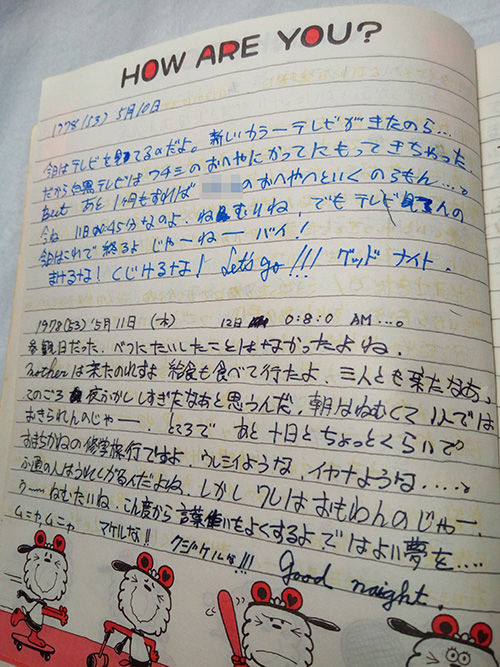 HOW ARE YOU?
1978(53) 5月10日
今日はテレビを見てるのだよ。新しいカラーテレビがきたのら…
だから白黒テレビはワチミのおへやにかってにもってきちゃった。
But あと1ヶ月もすれば のおへやへといくのらもん…。
今ね 11時45分なのよ。ねむいね、でもテレビ見るんの
今日はこれで終るよ じゃーねー バイ!
まけるな! くじけるな! Let's go!!! グッド ナイト.
1978(53) 5月11日 (木) 12日 0:8:0 AM…。
参観日だった。べつにたいしたことはなかったよね.
motherは来たのれすよ 給食も食べて行たよ. 三人とも来たなあ、
このごろ 夜ふかししすぎたなあと思うんだ。朝はねむくて 1人では
おきられんのじゃー ところで あと十日とちょっとくらいで
おまちかねの修学旅行ですよ. ウレシイような、イヤナような……
ふ通の人はうれしがるんだよね. しかし ワレはおもわんのじゃー.
うーねむたいね. こん度から 言葉使いもよくするよ ではよい夢を….
ムニャムニャ マケルな!! クジケルな!!! Good naight.